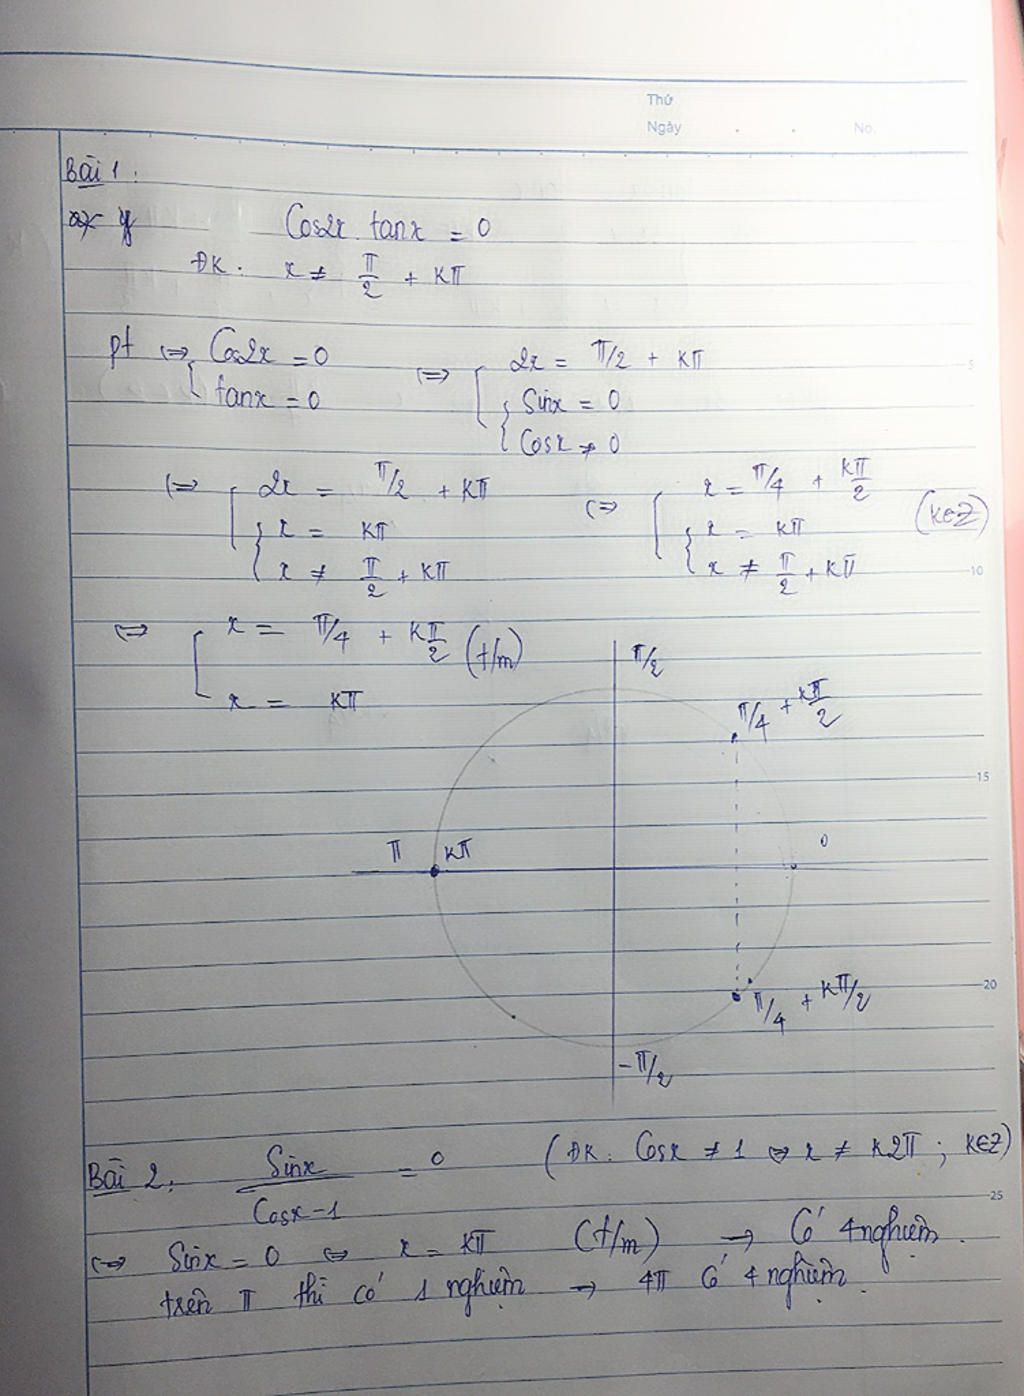 Thứ
Ngày . . No.
Bài 1:
Cos2x . tanx = 0
ĐK: x ≠ π/2 + kπ
pt ⇔ [ Cos2x = 0 ⇔ [ 2x = π/2 + kπ
tanx = 0 { Sinx = 0
Cosx ≠ 0
⇔ [ 2x = π/2 + kπ ⇔ [ x = π/4 + kπ/2 (k∈Z)
{ x = kπ { x = kπ
x ≠ π/2 + kπ x ≠ π/2 + kπ
⇔ [ x = π/4 + kπ/2 (t/m)
x = kπ
π/2
π/4 + kπ/2
π kπ 0
π/4 + kπ/2
-π/2
Bài 2: Sinx / Cosx-1 = 0 (ĐK: Cosx ≠ 1 ⇔ x ≠ k2π ; k∈Z)
⇔ Sinx = 0 ⇔ x = kπ (t/m) → Có 4 nghiệm.
trên π thì có 1 nghiệm → 4π có 4 nghiệm.
5
10
15
20
25